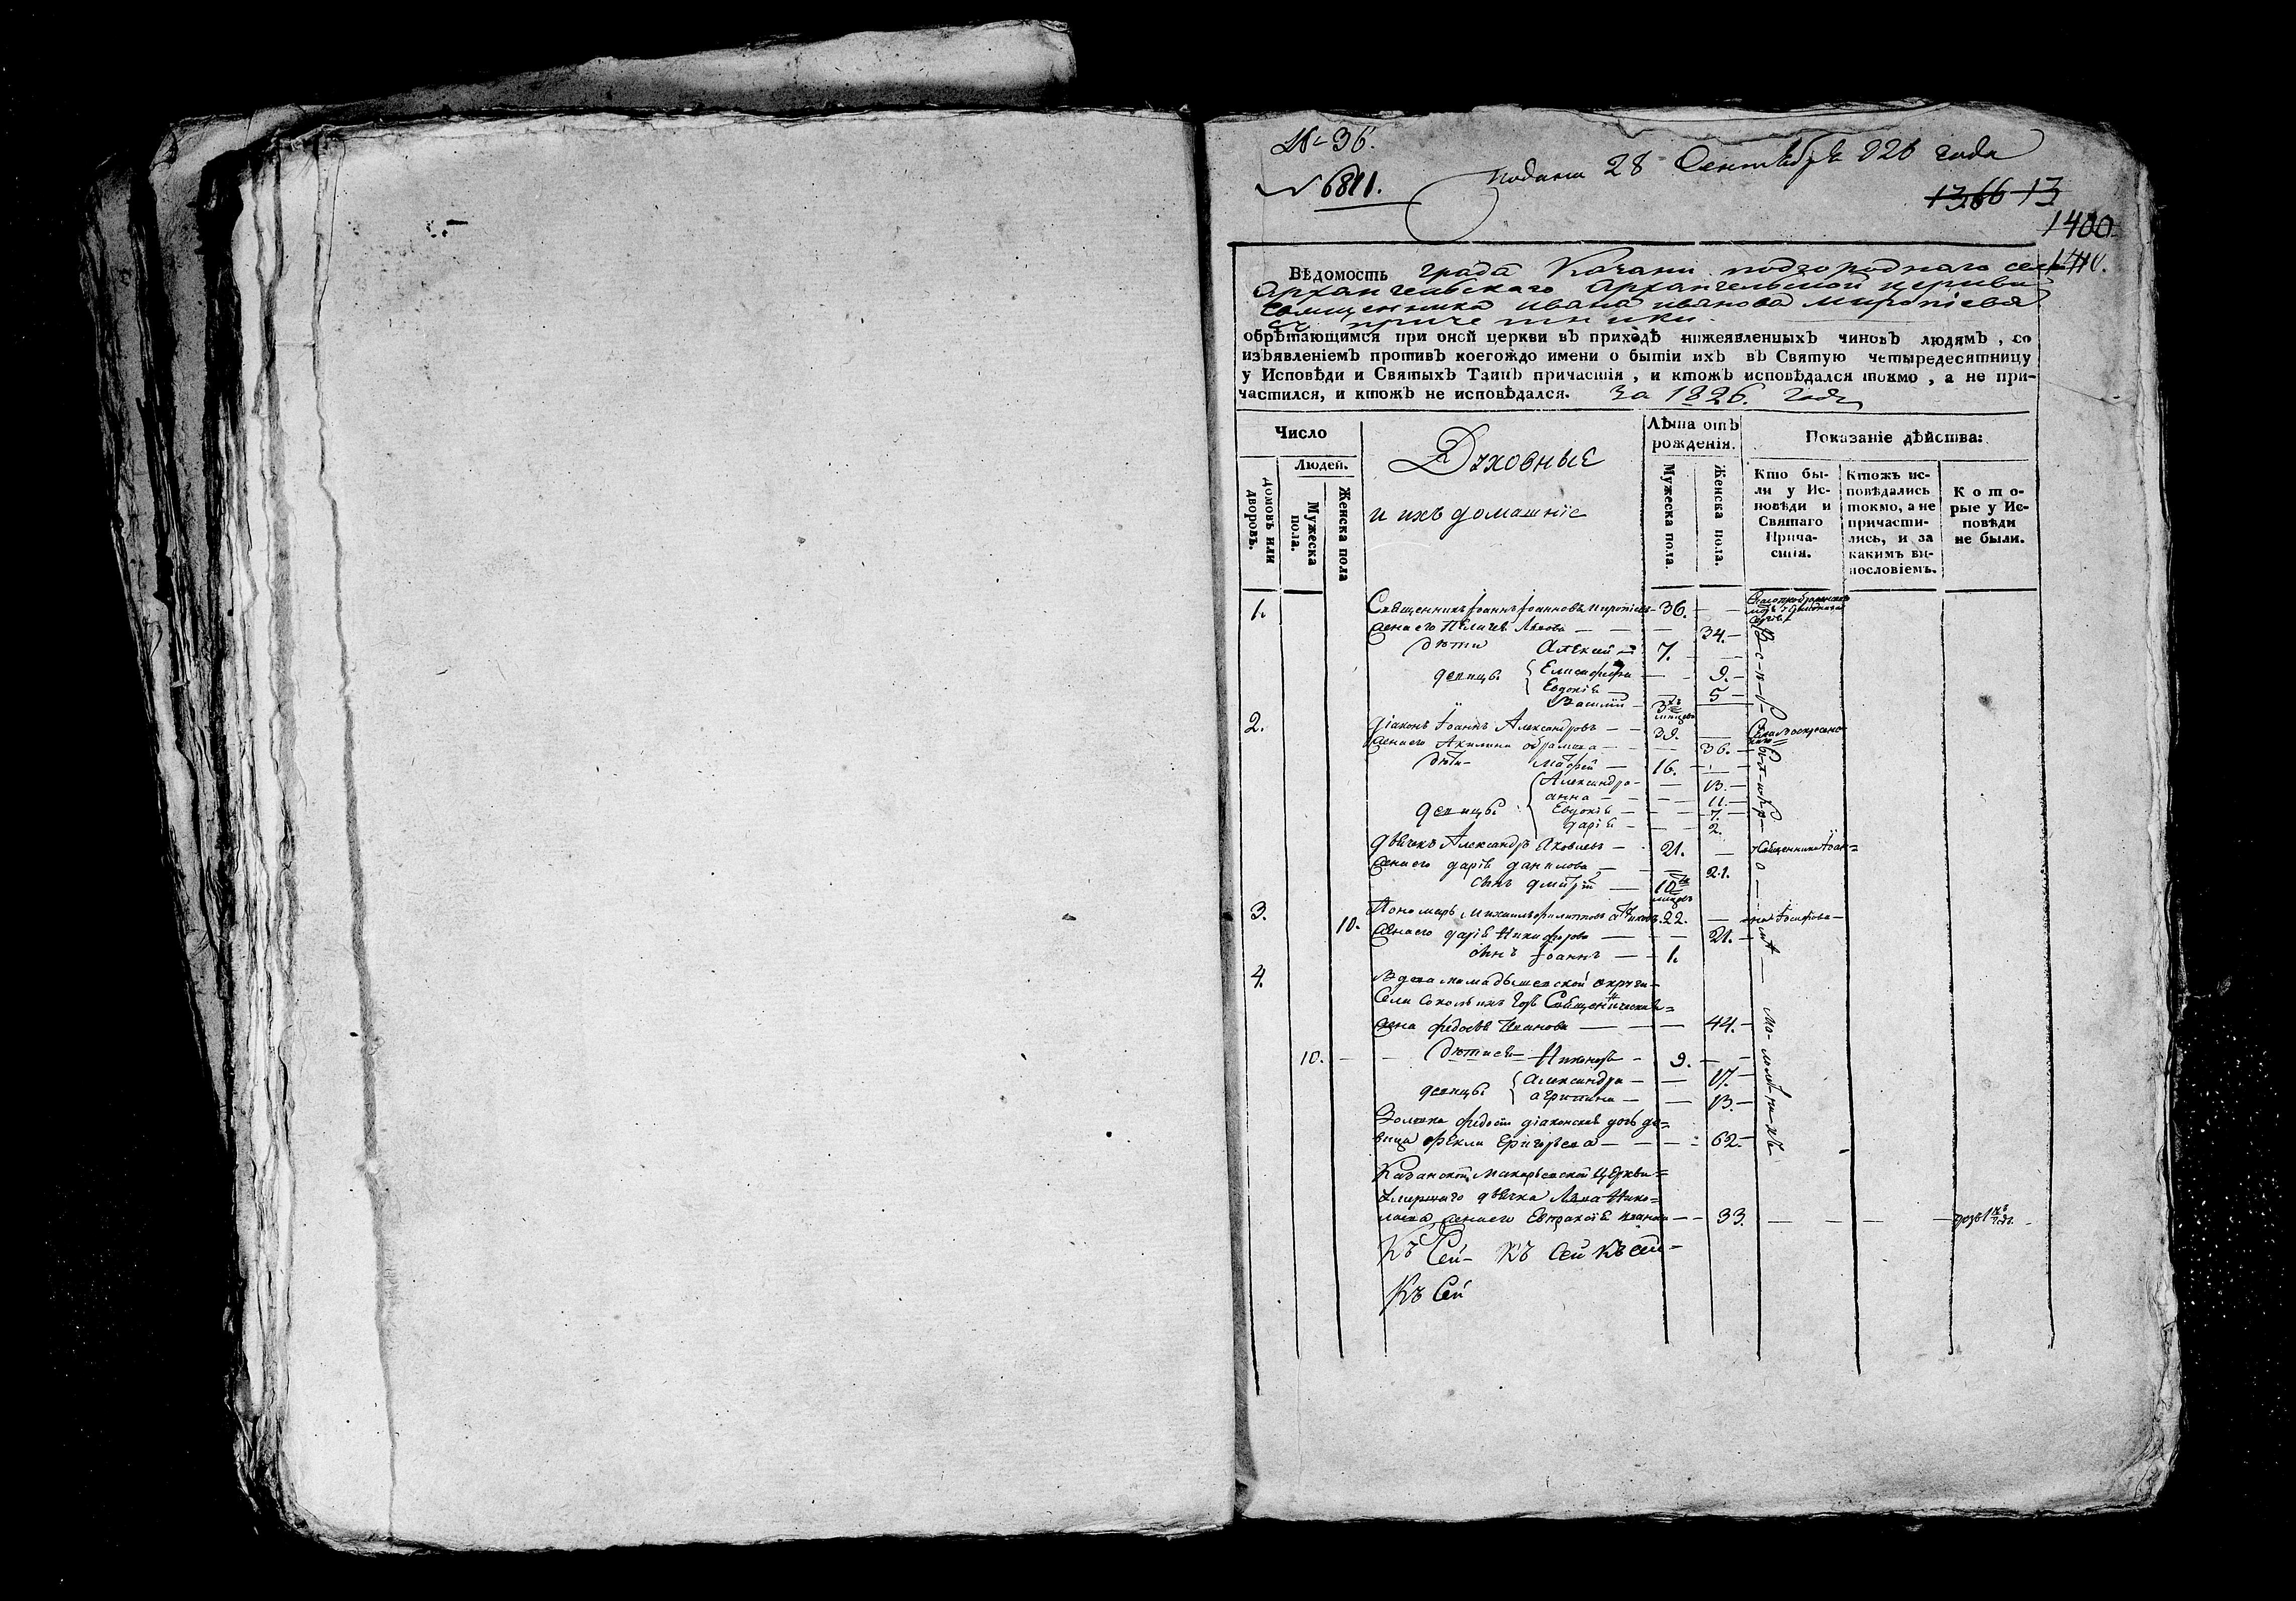 № 36.
№ 6811.
Подана 28 Сентября 826 года
1366 13
1400
1410.
Вѣдомость града Казани подгороднаго села
Архангельскаго Архангельской церкви
священника Ивана Иванова Миропіева
съ причетники.
обрѣтающимся при оной церкви въ приходѣ нижеявленныхъ чиновъ людямъ, со
изъявленіемъ противъ коегождо имени о бытіи ихъ въ Святую четыредесятницу
у Исповѣди и Святыхъ Таинъ причастія, и ктожъ исповѣдался токмо, а не при-
частился, и ктожъ не исповѣдался. За 1826. годъ
Число
Людей.
Домовъ или дворовъ.
Мужеска пола.
Женска пола
Духовные
и ихъ домашніе
Лѣта отъ рожденія.
Мужеска пола.
Женска пола.
Показаніе дѣйства:
Кто бы-
ли у Ис-
повѣди и
Святаго
Прича-
стія.
Ктожъ ис-
повѣдались
токмо, а не
причасти-
лись, и за
какимъ ви-
нословіемъ.
Кото-
рые у Ис-
повѣди
не были.
1. Священникъ Іоаннъ Іоанновъ Миропіевъ 36.
жена его Пелагея 34.
дѣти Алексей 7.
девицы Елисавета 9.
Евдокіѣ 5
Василій 3
2. Діаконъ Іоаннъ Александровъ 39.
жена его Акилина 36.
дѣти Матфей 16.
Александра 13.
девицы анна 11.
Евдокіѣ 7.
даріѣ 2.
дьячекъ Александръ Яковлевъ 21.
жена его даріѣ данилова 21.
сынъ дмитрій 10
3. 10. Пономарь Михаилъ Филипповъ 22.
жена его даріѣ Никифорова 21.
сынъ Іоаннъ 1.
4. Вдова мамадышевской округи
Села Сокольихъ горъ Священническая
жена федосьѣ Иванова 44.
10. дѣти ея Никоноръ 9.
девицы Александра 17.
агрипина 13.
діаконская дочь де=
вица фекла Григорьева 62.
Казанской Макарьевской Церкви
умершаго дьячка Льва Нико=
лаева жена его Евпраксіѣ Иванова 33.
Къ Сей Къ Сей Къ сей
Къ Сей